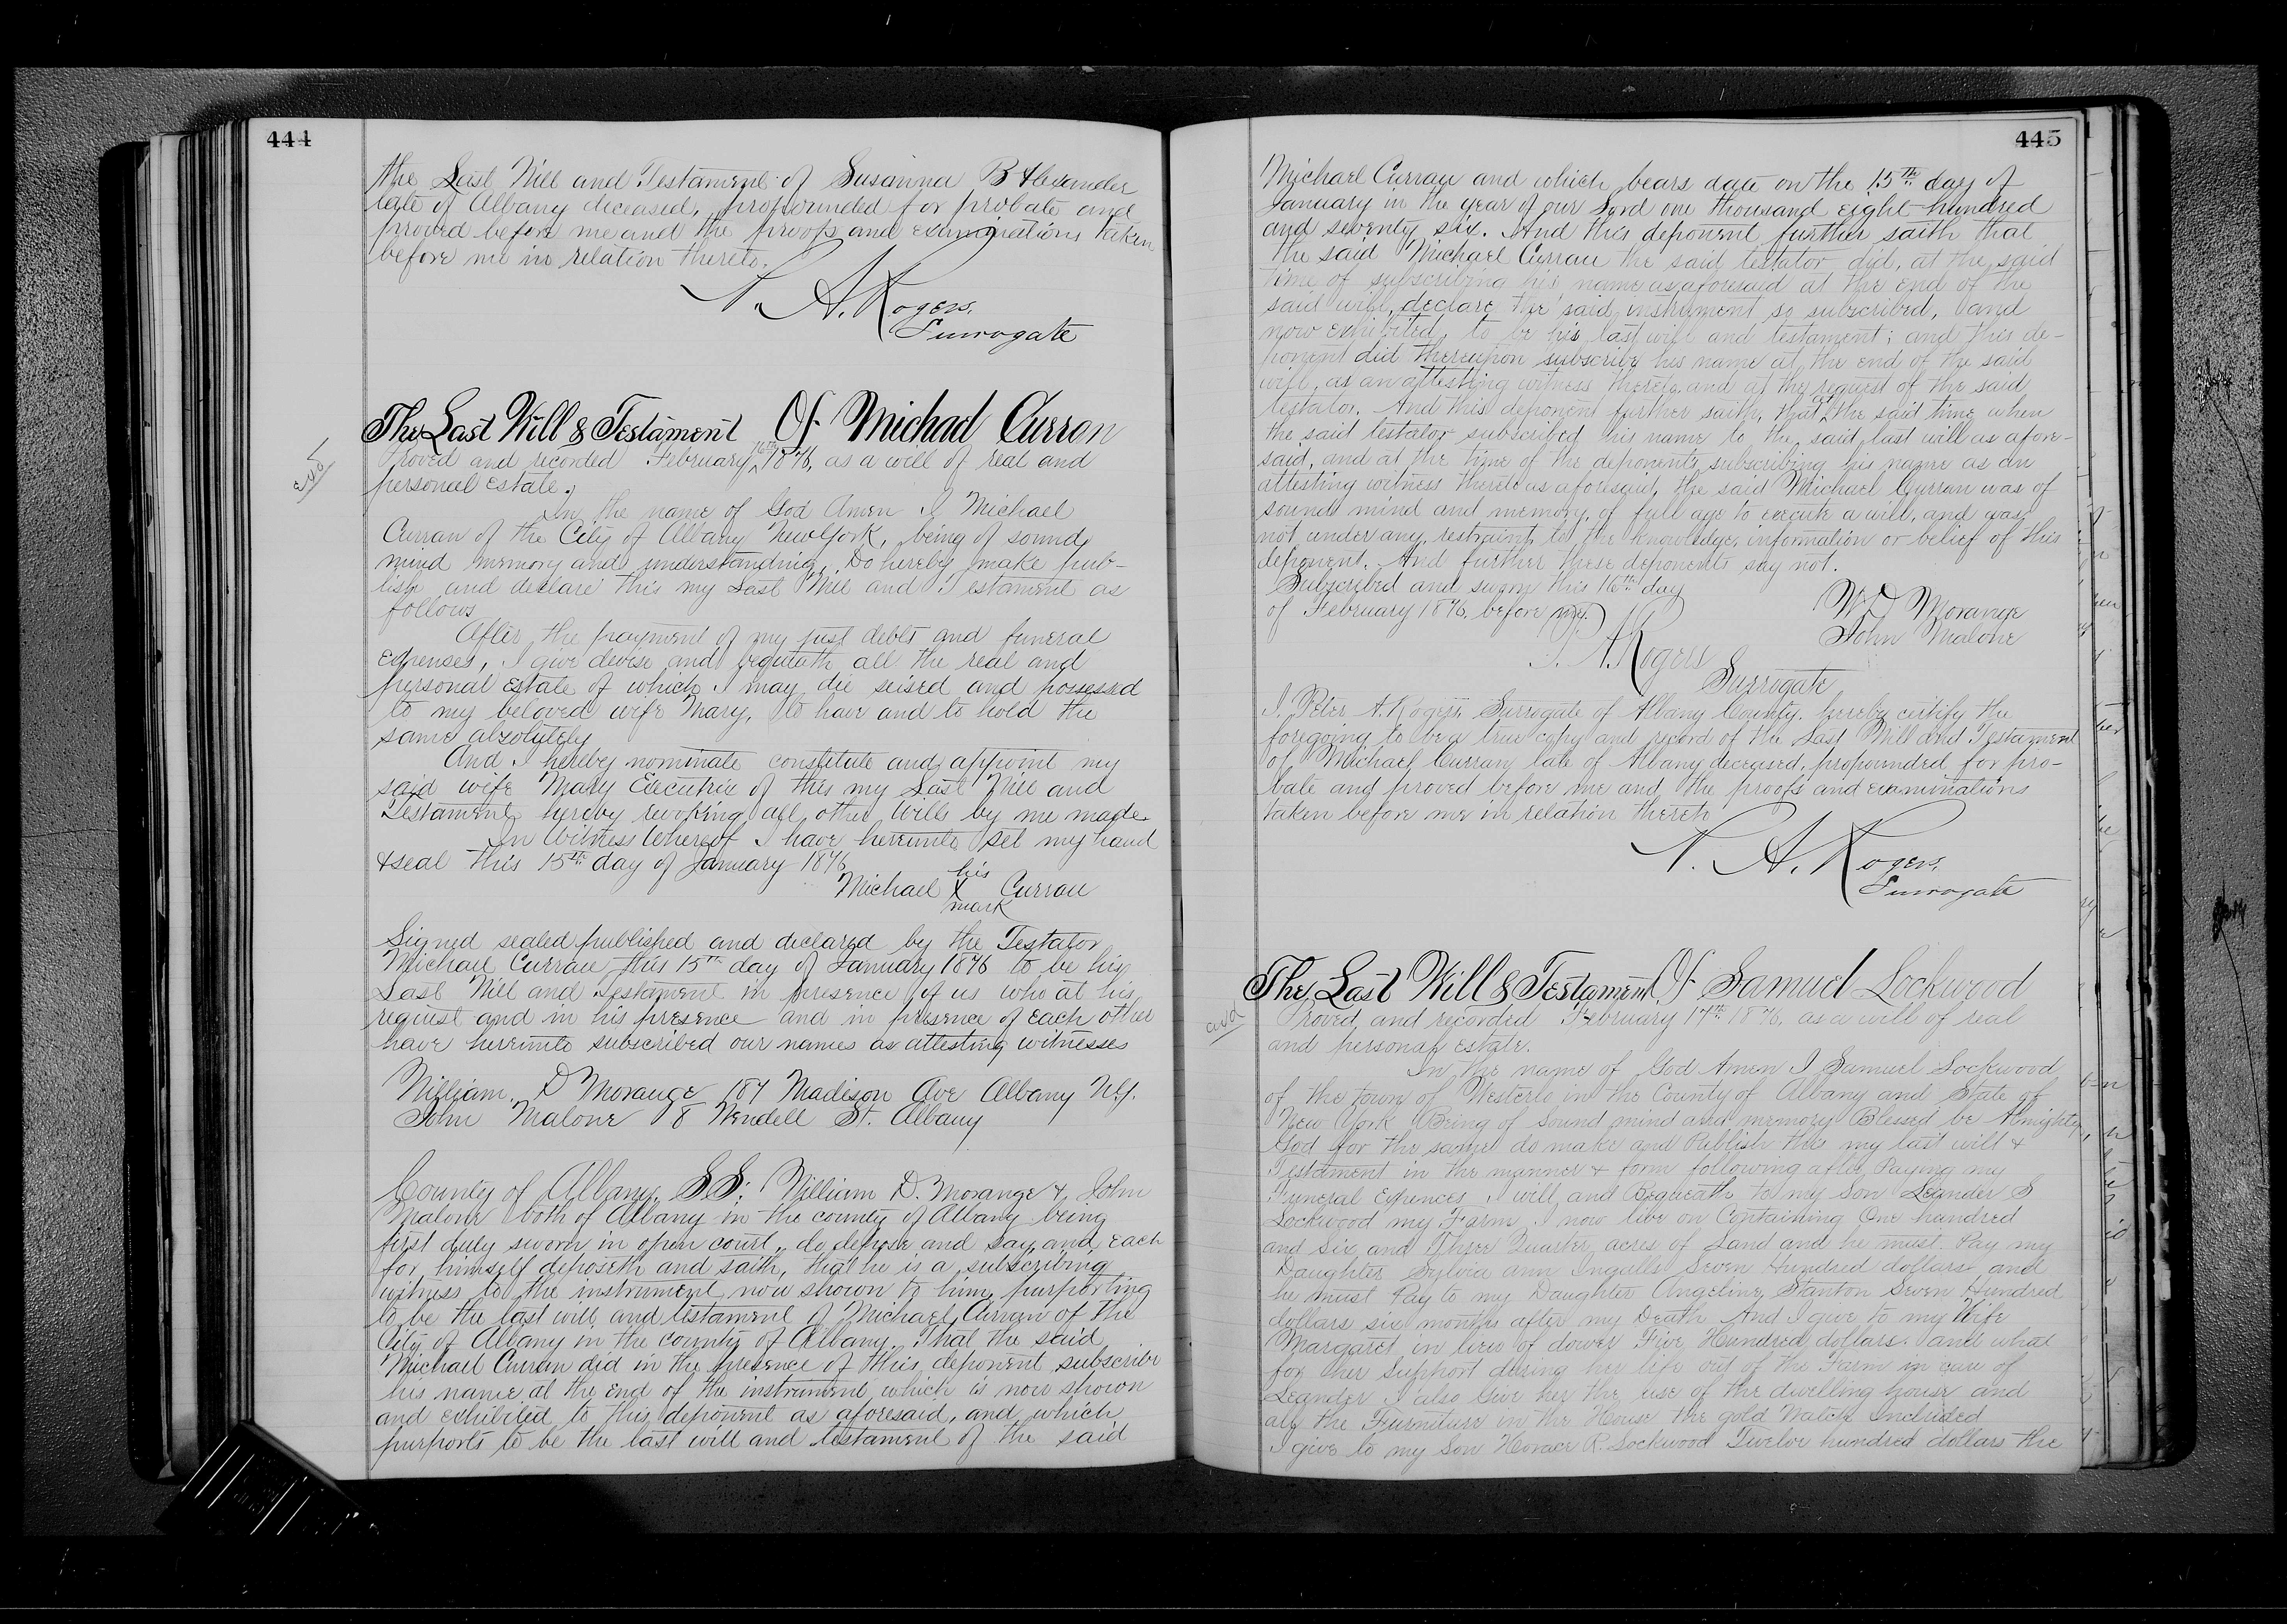 444
the Last Will and Testament of Susanna B Alexander
late of Albany deceased, propounded for probate and
proved before me and the proofs and examinations taken
before me in relation thereto.
P. A. Rogers,
Surrogate
The Last Will & Testament Of Michael Curran
Proved and recorded February 16th 1876, as a will of real and
personal Estate.
In the name of God Amen I Michael
Curran of the City of Albany New York, being of sound
mind memory and understanding, Do hereby make pub-
lish and declare this my Last Will and Testament as
follows
After the payment of my just debts and funeral
expenses, I give devise and bequeath all the real and
personal estate of which I may die seised and possessed
to my beloved wife Mary, to have and to hold the
same absolutely
And I hereby nominate constitute and appoint my
said wife Mary Executrix of this my Last Will and
Testament hereby revoking all other Wills by me made.
In Witness Whereof I have hereunto set my hand
& seal this 15th day of January 1876
his
Michael X Curran
mark
Signed sealed published and declared by the Testator
Michael Curran this 15th day of January 1876 to be his
Last Will and Testament in presence of us who at his
request and in his presence and in presence of each other
have hereunto subscribed our names as attesting witnesses
William. D Morange 187 Madison Ave Albany N.Y.
John Malone 8 Wendell St. Albany
County of Albany, S.S: William D. Morange & John
Malone both of Albany in the county of Albany being
first duly sworn in open court, do depose and say, and each
for himself deposeth and saith, that he is a subscribing
witness to the instrument now shown to him, purporting
to be the last will and testament of Michael Curran of the
City of Albany in the county of Albany. That the said
Michael Curran did in the presence of this deponent subscribe
his name at the end of the instrument which is now shown
and exhibited to this deponent as aforesaid, and which
purports to be the last will and testament of the said
445
Michael Curran and which bears date on the 15th day of
January in the year of our Lord one thousand eight hundred
and seventy six. And this deponent further saith that
the said Michael Curran the said testator did, at the said
time of subscribing his name as aforesaid at the end of the
said will, declare the said instrument so subscribed, and
now exhibited, to be his last will and testament; and this de-
ponent did thereupon subscribe his name at the end of the said
will, as an attesting witness thereto and at the request of the said
testator. And this deponent further saith, that at the said time when
the said testator subscribed his name to the said last will as afore-
said, and at the time of the deponents subscribing his name as an
attesting witness thereto as aforesaid, the said Michael Curran was of
sound mind and memory, of full age to execute a will, and was
not under any restraint to the knowledge, information or belief of this
deponent. And further these deponents say not.
Subscribed and sworn this 16th day
of February 1876, before me.
W D Morange
John Malone
P. A. Rogers
Surrogate
I, Peter A. Rogers, Surrogate of Albany County, hereby certify the
foregoing to be a true copy and record of the Last Will and Testament
of Michael Curran late of Albany deceased, propounded for pro-
bate and proved before me and the proofs and examinations
taken before me in relation thereto
P. A. Rogers,
Surrogate
The Last Will & Testament Of Samuel Lockwood
Proved and recorded February 17th 1876, as a will of real
and personal estate.
In the name of God Amen I Samuel Lockwood
of the town of Westerlo in the County of Albany and State of
New York Being of Sound mind and memory Blessed be Almighty
God for the same do make and Publish this my last will &
Testament in the manner & form following after Paying my
Funeral Expences I will and Bequeath to my Son Leander S
Lockwood my Farm I now live on Containing One hundred
and Six and Three Quarter acres of Land and he must Pay my
Daughter Sylvia ann Ingalls Seven Hundred dollars and
he must Pay to my Daughter Angeline Stanton Seven Hundred
dollars six months after my Death And I give to my Wife
Margaret in lieu of dower Five Hundred dollars and what
for her Support during her life out of the Farm in care of
Leander I also Give her the use of the dwelling house and
all the Furniture in the House the gold Watch Included
I give to my Son Horace R. Lockwood Twelve hundred dollars the